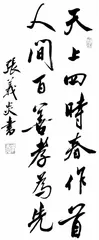 天上四時春作首
人間百善孝為先
張義炎書